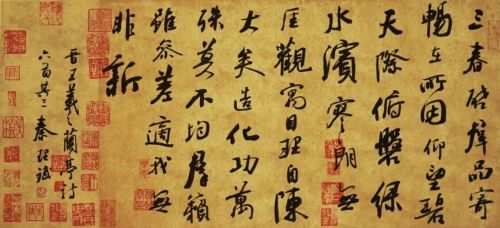 三春啓羣品寄
暢在所因仰望碧
天際俯磐綠
水濱寥朗無
厓觀寓目理自陳
大矣造化功萬
殊莫不均羣籟
雖參差適我無
非新
晉王羲之蘭亭詩
六首其二 秦